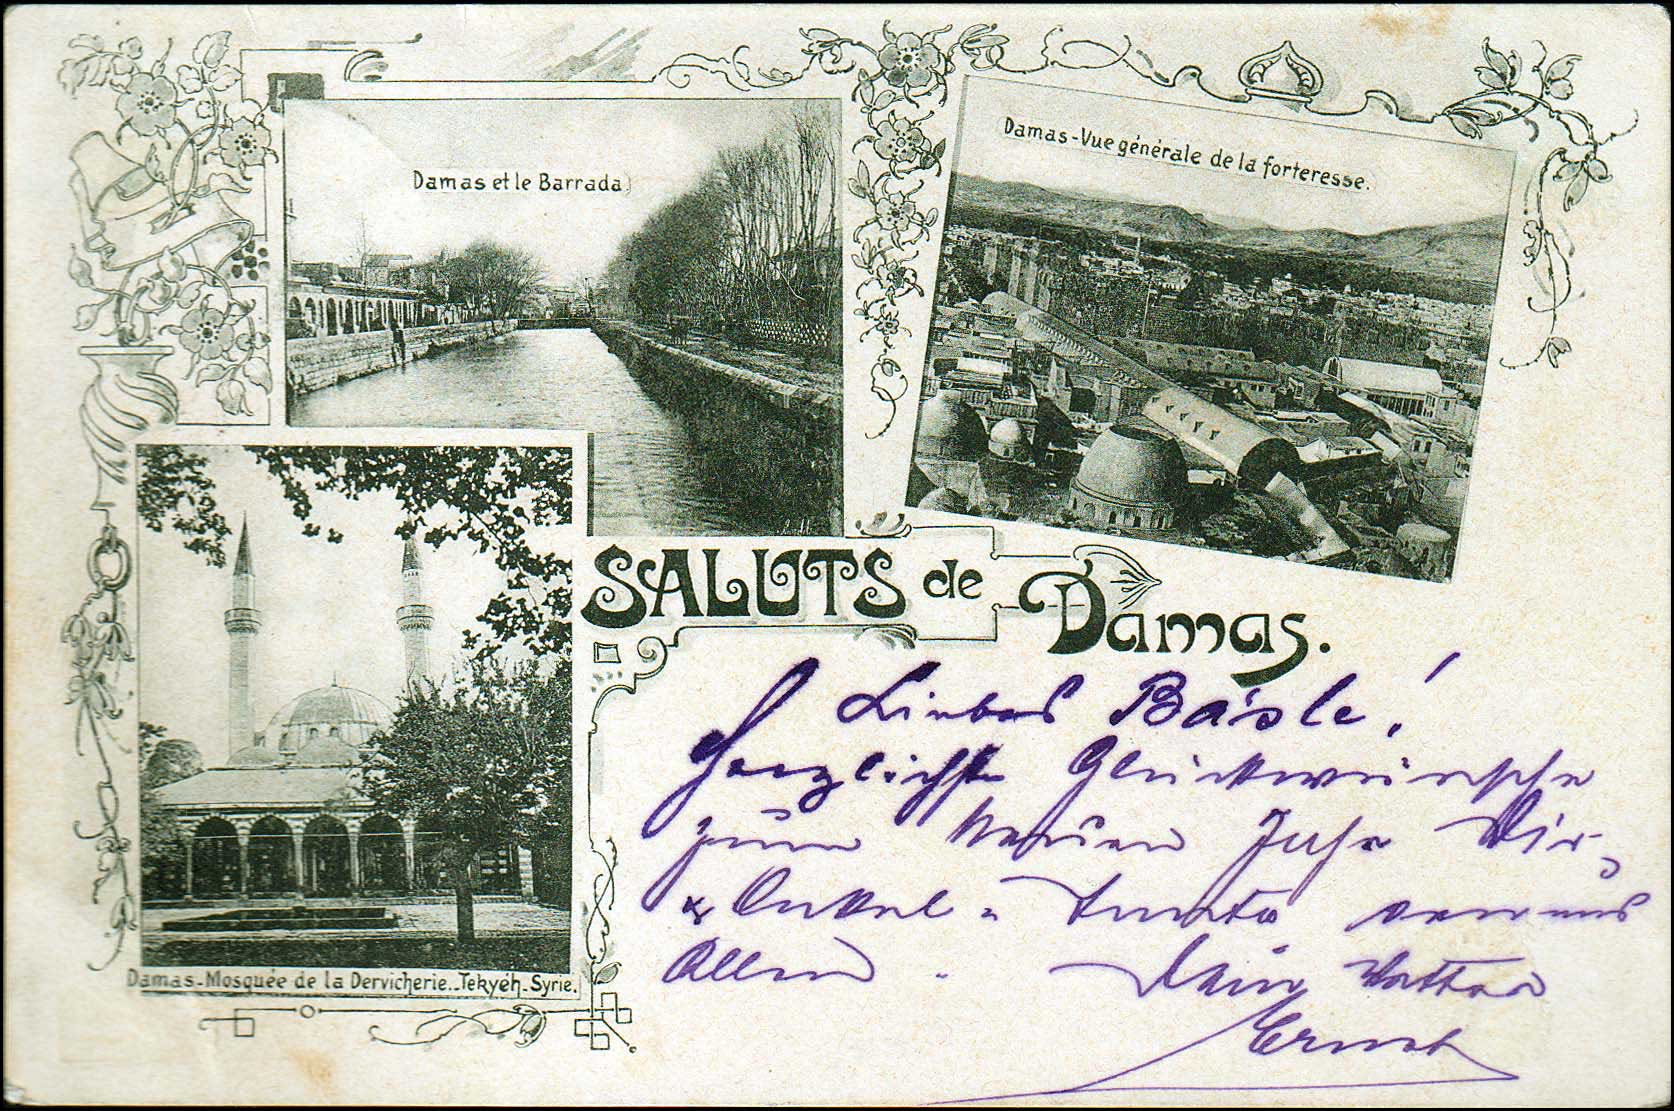 Damas et le Barrada
Damas-Vue générale de la forteresse.
SALUTS de Damas.
Damas-Mosquée de la Dervicherie.-Tekyéh-Syrie.
Liebes Bäsle!
Herzlichste Glückwünsche
zum neuen Jahr Dir,
Onkel u. Tante von uns
Allen. Dein Vetter
Ernst